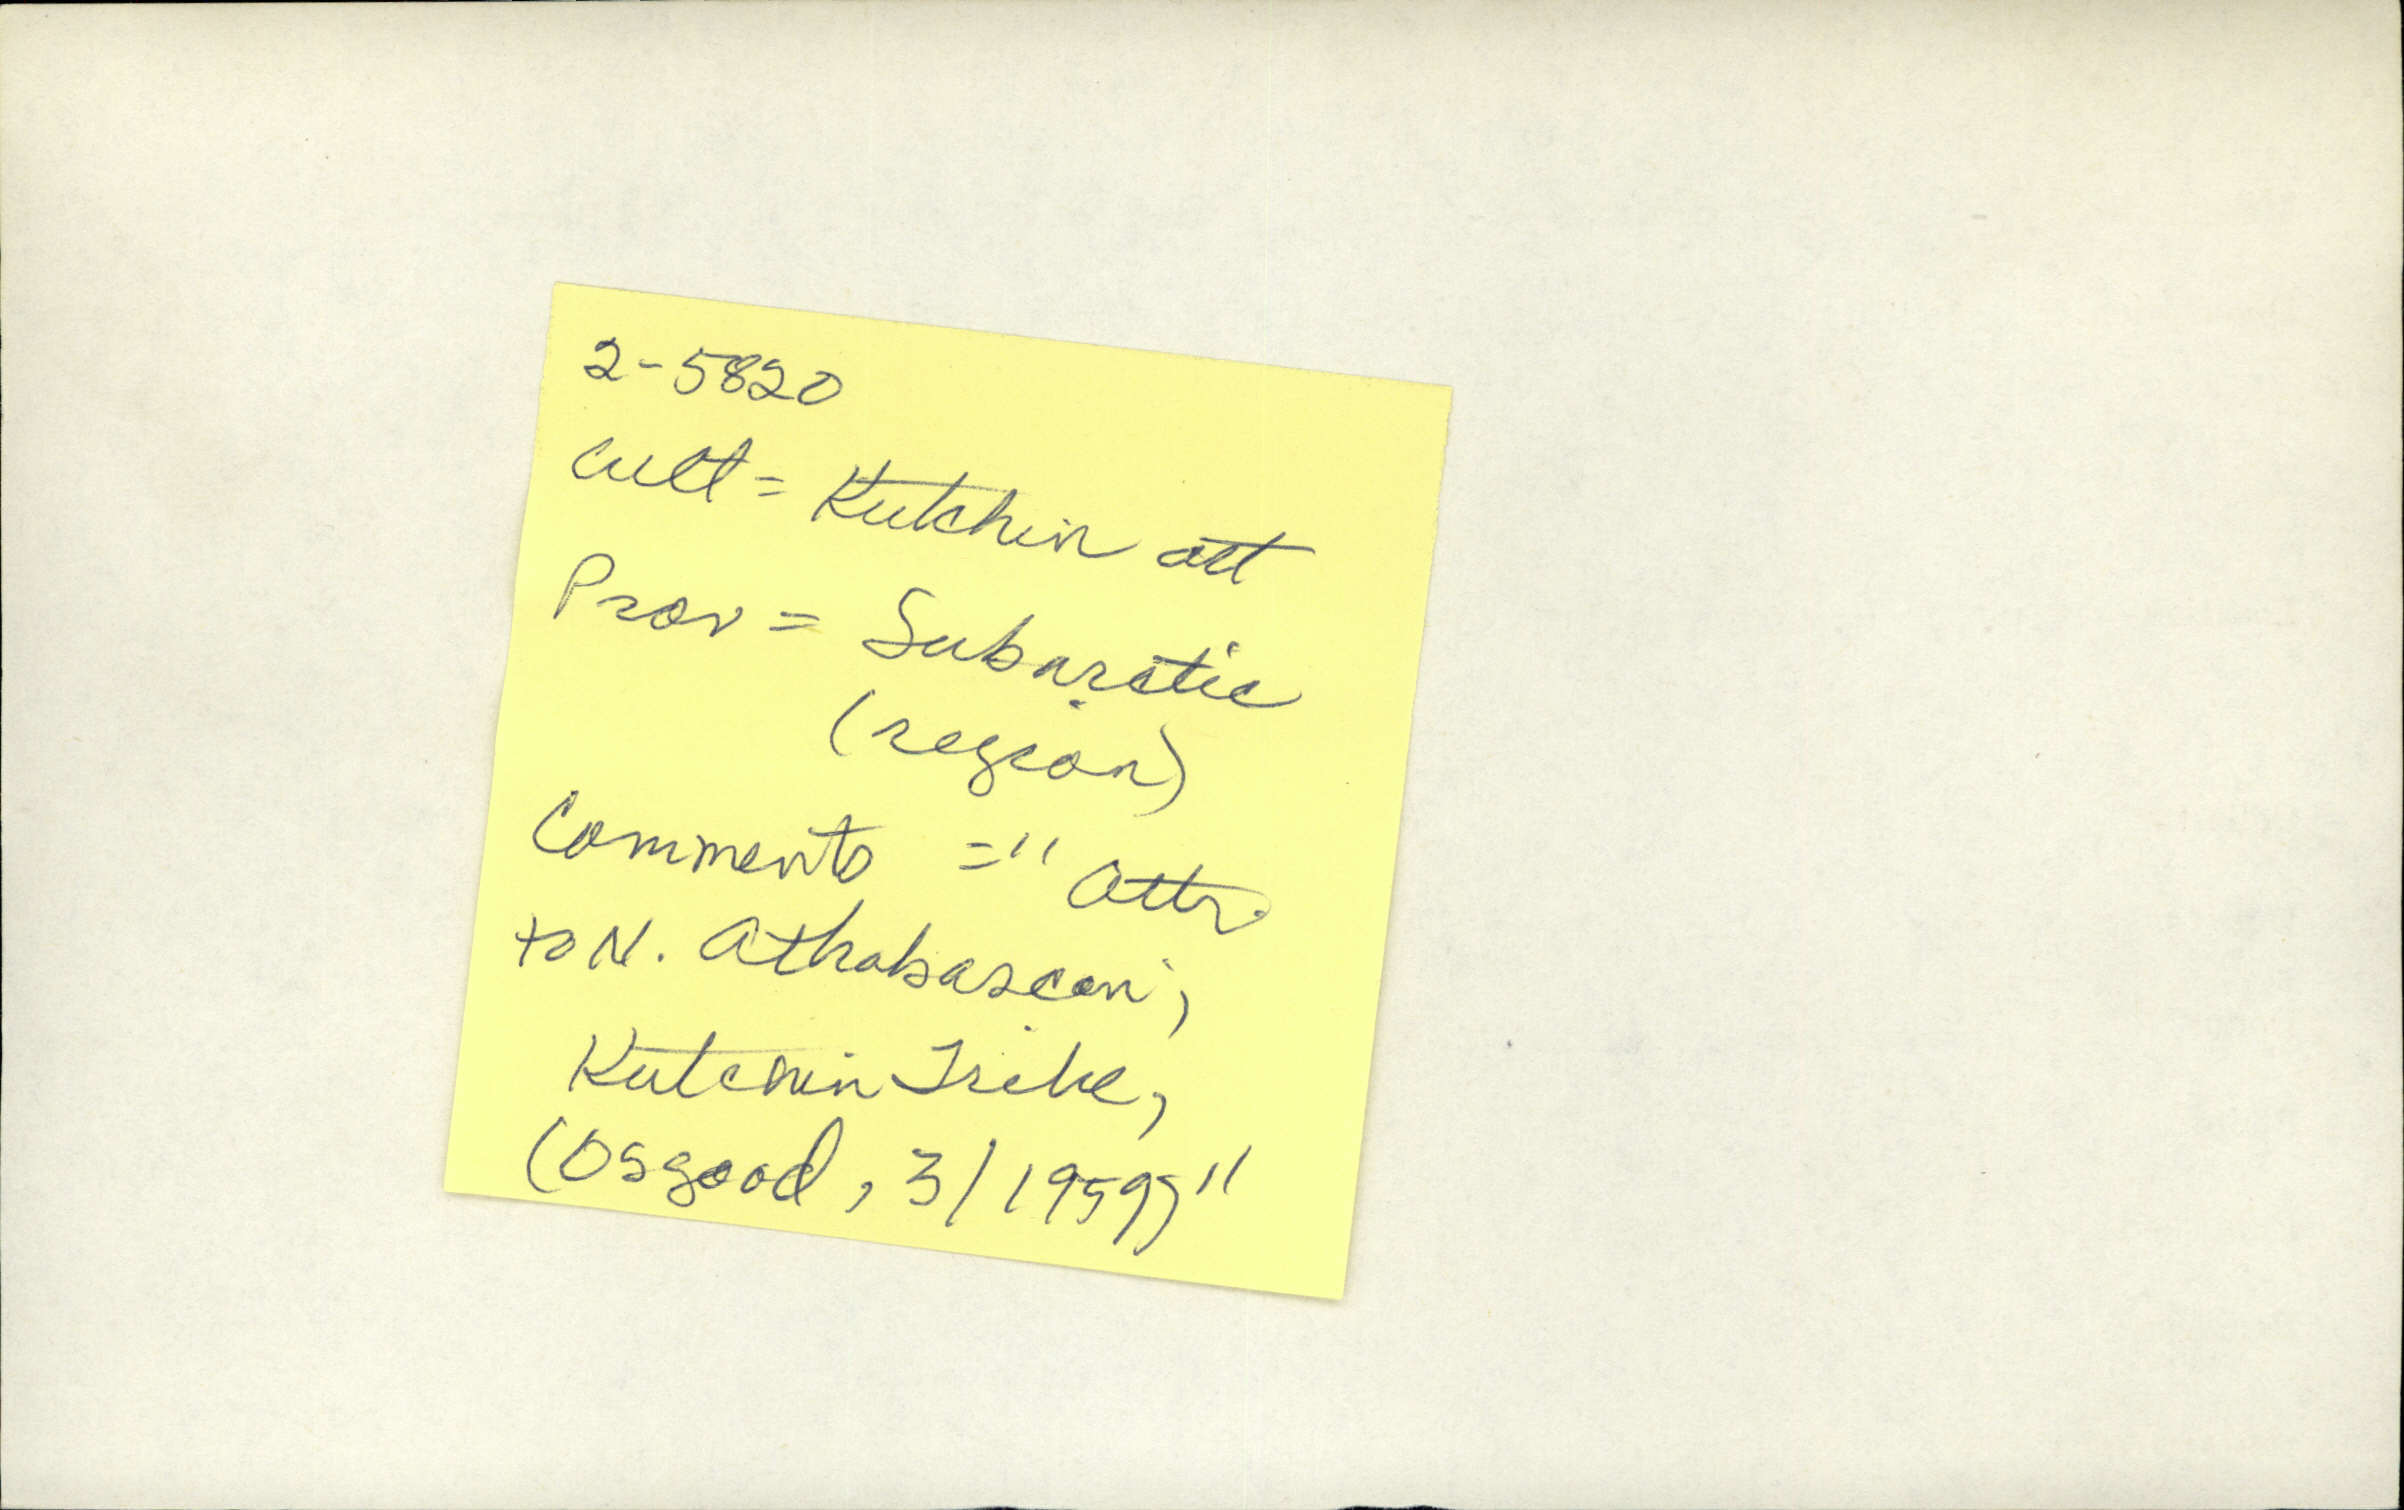 2-5820
Cult = Kutchin att
Prov = Subarctic
(region)
Comments = "Attr.
to N. Athabascan,
Kutchin Tribe,
(Osgood, 3/1959)"